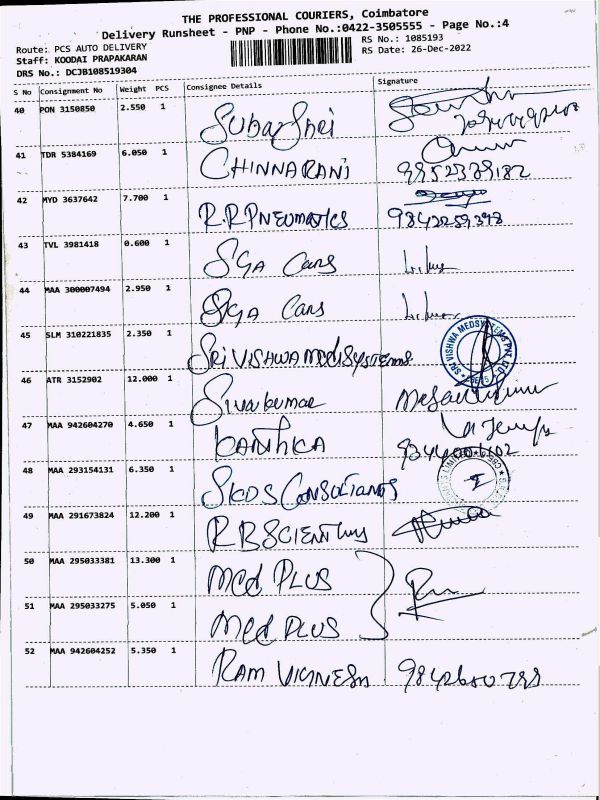 THE PROFESSIONAL COURIERS, Coimbatore
Delivery Runsheet - PNP - Phone No.:0422-3505555 - Page No.:4
Route: PCS AUTO DELIVERY
RS No.: 1085193
Staff: KOODAI PRAPAKARAN
RS Date: 26-Dec-2022
DRS No.: DCJB108519304
S No Consignment No Weight PCS Consignee Details Signature
40 PON 3150850 2.550 1 Suba Shri
41 TDR 5384169 6.050 1 CHINNARANI 9952339182
42 MYD 3637642 7.700 1 R.R PNEUMATICS 9842259398
43 TVL 3981418 0.600 1 SGA Cars
44 MAA 300007494 2.950 1 SGA Cars
45 SLM 310221835 2.350 1 SRI VISHWA MEDISYSTEMS SRI VISHWA MEDSYSTEMS PVT LTD
46 ATR 3152902 12.000 1 Sivakumar
47 MAA 942604270 4.650 1
48 MAA 293154131 6.350 1 SKDS CONSULTANTS
49 MAA 291673824 12.200 1 R B SCIENTIFIC
50 MAA 295033381 13.300 1 Med PLUS
51 MAA 295033275 5.050 1 Med PLUS
52 MAA 942604252 5.350 1 RAM VIGNESH